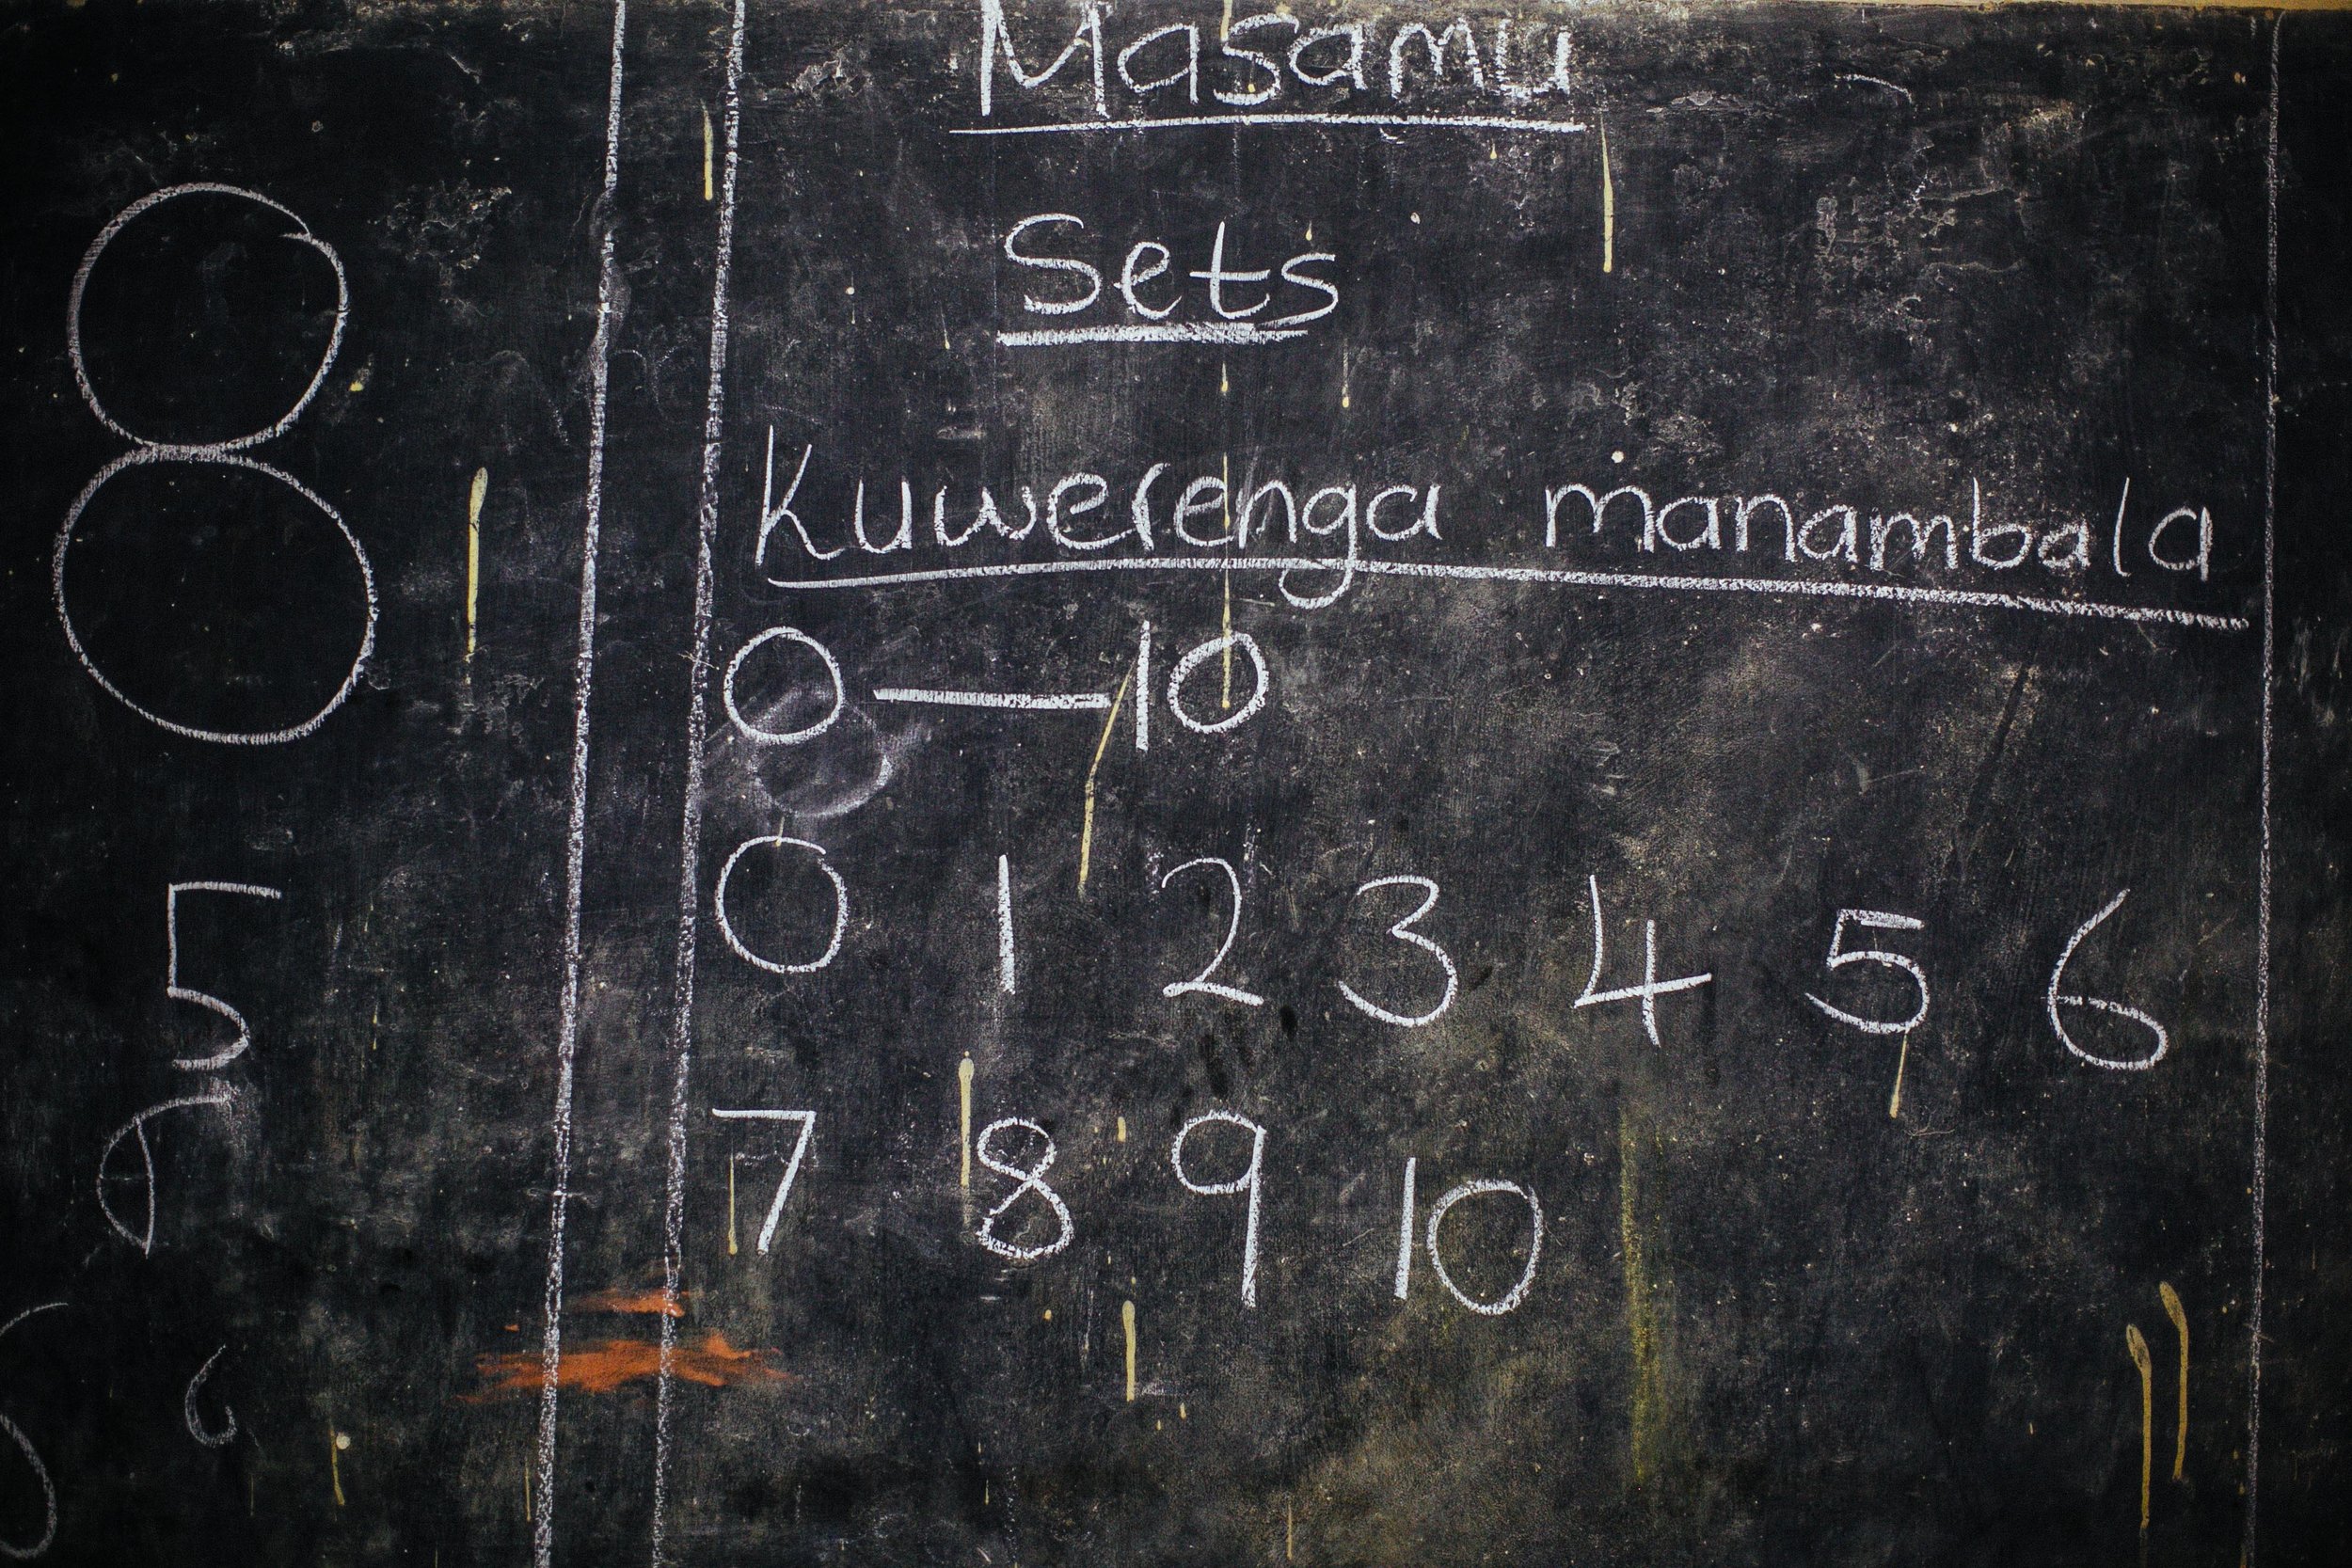 Masamu
Sets
Kuwerenga manambala
0 — 10
0 1 2 3 4 5 6
7 8 9 10
8
5